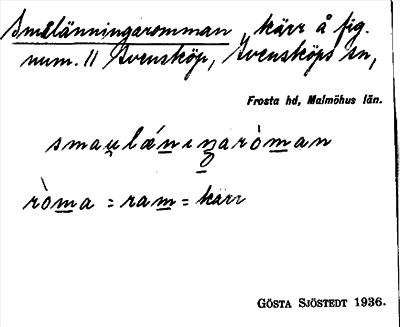 Smålänningaromman, kärr å fig.
num. 11 Svensköp, Svensköps sn,
Frosta hd, Malmöhus län.
smau̯lǽnıŋaròman
ròma = ram = kärr
GÖSTA SJÖSTEDT 1936.